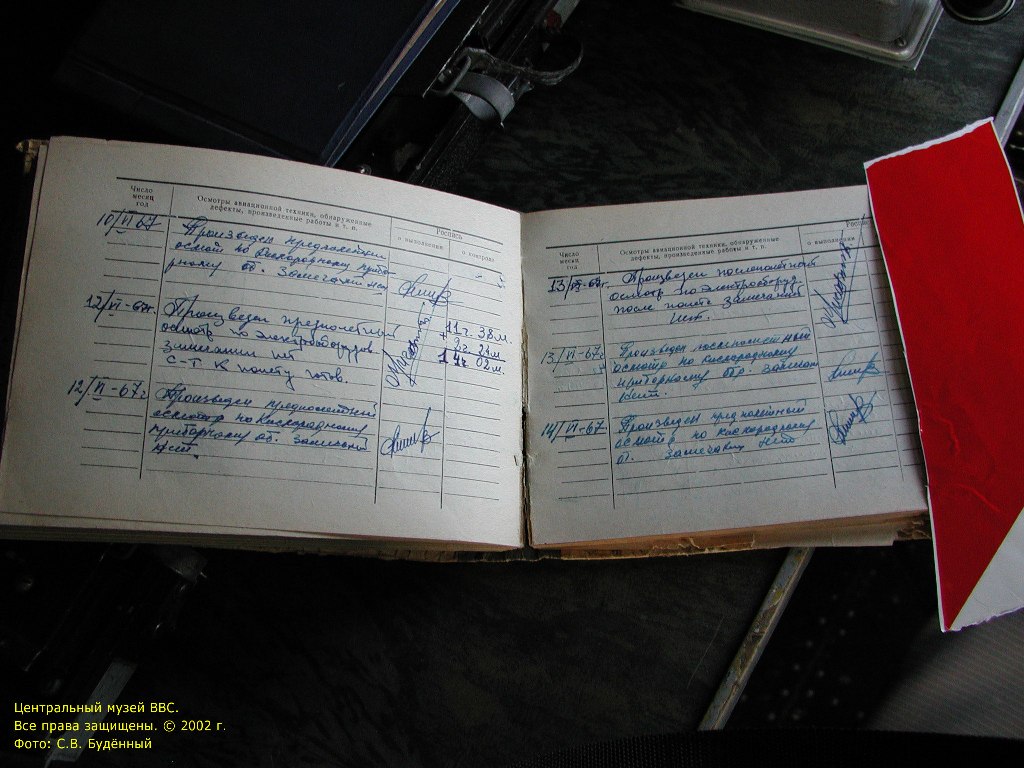 Число
месяц
год
Осмотры авиационной техники, обнаруженные
дефекты, произведенные работы и т. п.
Роспись
о выполнении
о контроле
10/VI 67
Произведен предполетный
осмотр по кислородному прибо-
рному об. Замечаний нет
12/VI-67г
Произведен предполетный
осмотр по электрооборудов.
Замечаний нет
С-т к полету готов.
11ч. 38м.
+ 2ч. 24м.
14ч. 02м.
12/VI-67г
Произведен предполетный
осмотр по кислородному
приборному об. Замечаний
нет.
Число
месяц
год
Осмотры авиационной техники, обнаруженные
дефекты, произведенные работы и т. п.
Роспи
о выполнении
13/VI-67г.
Произведен послеполетный
осмотр по электрооборуд.
после полета Замечаний
нет.
13/VI-67г.
Произведен послеполетный
осмотр по кислородному
приборному обр. Замечан
нет.
14/VI-67
Произведен предполетный
осмотр по кислородному
об. Замечаний нет
Центральный музей ВВС.
Все права защищены. © 2002 г.
Фото: С.В. Будённый